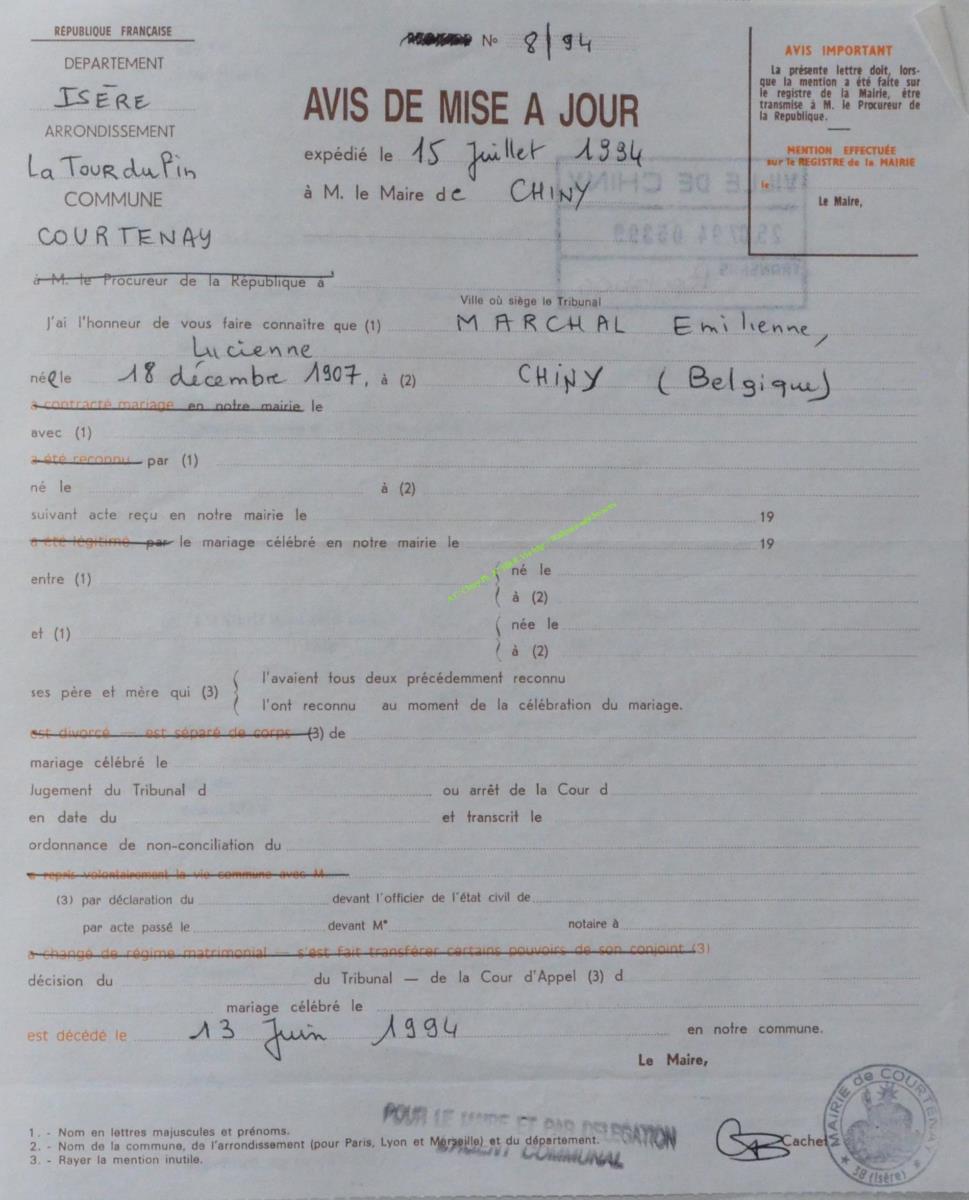 RÉPUBLIQUE FRANÇAISE
DEPARTEMENT
ISÈRE
ARRONDISSEMENT
La Tour du Pin
COMMUNE
COURTENAY
N° 8/94
AVIS DE MISE A JOUR
expédié le 15 Juillet 1994
à M. le Maire de CHINY
AVIS IMPORTANT
La présente lettre doit, lors-
que la mention a été faite sur
le registre de la Mairie, être
transmise à M. le Procureur de
la Republique.
MENTION EFFECTUÉE
sur le REGISTRE de la MAIRIE
le
Le Maire,
VILLE DE CHINY
25.07.94
TRANSMIS
à M. le Procureur de la République à
Ville où siège le Tribunal
J'ai l'honneur de vous faire connaître que (1) MARCHAL Emilienne,
Lucienne
née le 18 décembre 1907, à (2) CHINY (Belgique)
a contracté mariage en notre mairie le
avec (1)
a été reconnu par (1)
né le à (2)
suivant acte reçu en notre mairie le 19
a été légitimé par le mariage célébré en notre mairie le 19
entre (1) né le
à (2)
et (1) née le
à (2)
ses père et mère qui (3) l'avaient tous deux précédemment reconnu
l'ont reconnu au moment de la célébration du mariage.
est divorcé — est séparé de corps (3) de
mariage célébré le
Jugement du Tribunal d ou arrêt de la Cour d
en date du et transcrit le
ordonnance de non-conciliation du
a repris volontairement la vie commune avec M
(3) par déclaration du devant l'officier de l'état civil de
par acte passé le devant Me notaire à
a changé de régime matrimonial — s'est fait transférer certains pouvoirs de son conjoint (3)
décision du du Tribunal — de la Cour d'Appel (3) d
mariage célébré le
est décédé le 13 Juin 1994 en notre commune.
Le Maire,
POUR LE MAIRE ET PAR DELEGATION
L'AGENT COMMUNAL
Cachet
MAIRIE de COURTENAY
38 (Isère)
1. - Nom en lettres majuscules et prénoms.
2. - Nom de la commune, de l'arrondissement (pour Paris, Lyon et Marseille) et du département.
3. - Rayer la mention inutile.